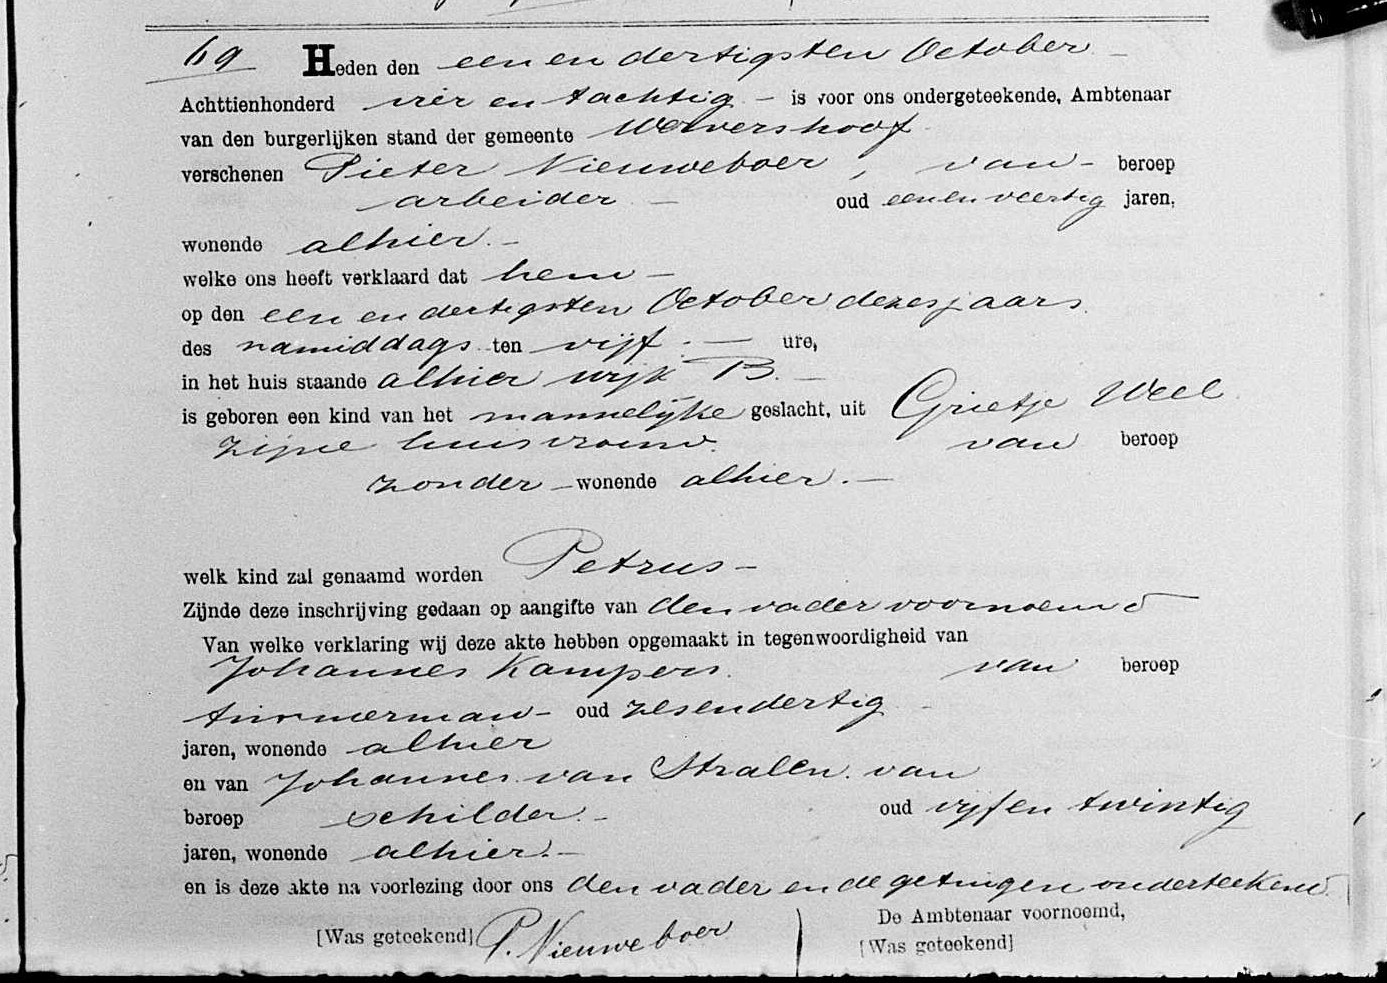 69 Heden den een en dertigsten October
Achttienhonderd vier en tachtig is voor ons ondergeteekende, Ambtenaar
van den burgerlijken stand der gemeente Wervershoof
verschenen Pieter Nieuweboer, van beroep
arbeider oud een en veertig jaren,
wonende alhier.
welke ons heeft verklaard dat hem
op den een en dertigsten October dezes jaars
des namiddags ten vijf ure,
in het huis staande alhier wijk B.
is geboren een kind van het mannelijke geslacht, uit Grietje Weel
zijne huisvrouw. van beroep
zonder wonende alhier.
welk kind zal genaamd worden Petrus
Zijnde deze inschrijving gedaan op aangifte van den vader voornoemd
Van welke verklaring wij deze akte hebben opgemaakt in tegenwoordigheid van
Johannes Kampers. van beroep
timmerman oud zesendertig
jaren, wonende alhier
en van Johannes van Stralen. van
beroep schilder. oud vijf en twintig
jaren, wonende alhier.
en is deze akte na voorlezing door ons den vader en de getuigen onderteekend.
De Ambtenaar voornoemd,
[Was geteekend] P. Nieuweboer [Was geteekend]